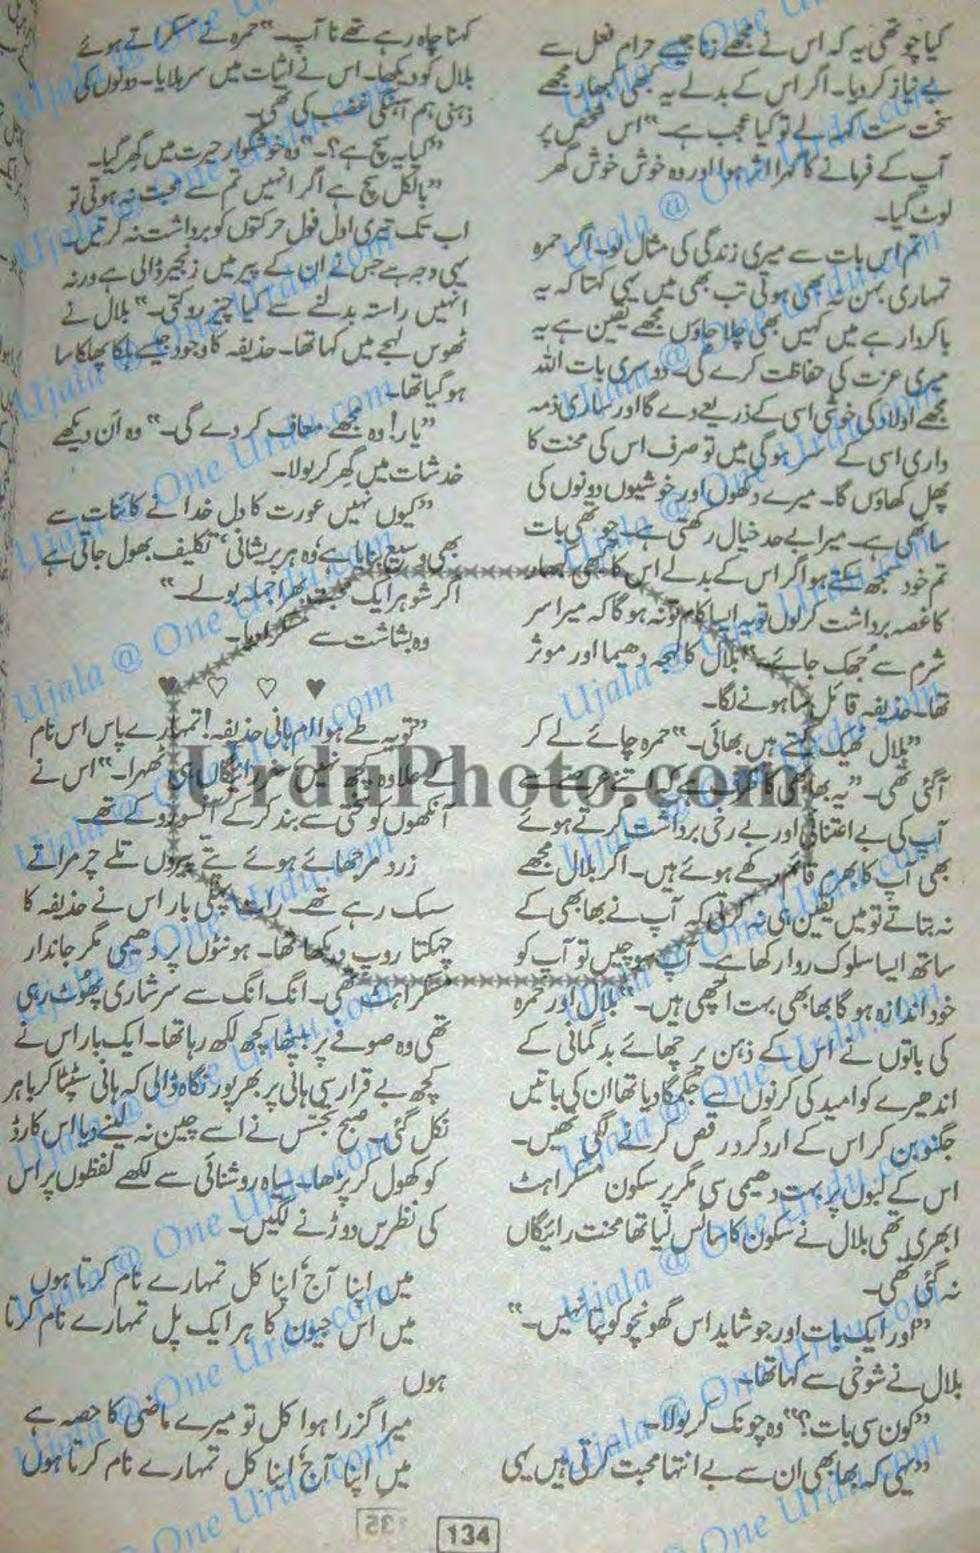 کیا چوتھی یہ کہ اس نے مجھے زنا جیسے حرام فعل سے
بے نیاز کردیا۔ اگر اس کے بدلے یہ کبھی کبھار مجھے
سخت ست کہہ لے تو کیا عجب ہے۔" اس شخص پر
آپ کے فرمانے کا گہرا اثر ہوا اور وہ خوش خوش گھر
لوٹ گیا۔
تم اس بات سے میری زندگی کی مثال لو۔ اگر حمرہ
تمہاری بہن نہ بھی ہوتی تب بھی میں یہی کہتا کہ یہ
باکردار ہے میں کہیں بھی چلا جاؤں مجھے یقین ہے یہ
میری عزت کی حفاظت کرے گی۔ دوسری بات اللہ
مجھے اولاد کی خوشی اسی کے ذریعے دے گا اور ساری ذمہ
داری اسی کے سر ہوگی میں تو صرف اس کی محنت کا
پھل کھاؤں گا۔ میرے دکھوں اور خوشیوں دونوں کی
ساتھی ہے۔ میرا بے حد خیال رکھتی ہے۔ چوتھی بات
تم خود سمجھ سکتے ہو اگر اس کے بدلے اس کا کبھی کبھار
کا غصہ برداشت کرلوں تو یہ ایسا کام تو نہ ہوگا کہ میرا سر
شرم سے جھک جائے۔" بلال کا لہجہ دھیما اور موثر
تھا۔ حذیفہ قائل سا ہونے لگا۔
"بلال ٹھیک کہتے ہیں بھائی۔" حمرہ چائے لے کر
آگئی تھی۔ "یہ بھابھی کا ظرف ہے کہ اتنے عرصے سے
آپ کی بے اعتنائی اور بے رخی برداشت کرتے ہوئے
بھی آپ کا بھرم قائم رکھے ہوئے ہیں۔ اگر بلال مجھے
نہ بتاتے تو میں یقین ہی نہ کرتی کہ آپ نے بھابھی کے
ساتھ ایسا سلوک روا رکھا ہے۔ آپ سوچیں تو آپ کو
خود اندازہ ہوگا بھابھی بہت اچھی ہیں۔" بلال اور حمرہ
کی باتوں نے اس کے ذہن پر چھائے بدگمانی کے
اندھیرے کو امید کی کرنوں سے جگمگا دیا تھا ان کی باتیں
جگنو بن کر اس کے ارد گرد رقص کرنے لگی تھیں۔
اس کے لبوں پر بہت دھیمی سی مگر پرسکون مسکراہٹ
ابھری تھی بلال نے سکون کا سانس لیا تھا محنت رائیگاں
نہ گئی تھی۔
"اور ایک بات اور جو شاید اس گھونچو کو پتا نہیں۔"
بلال نے شوخی سے کہا تھا۔
"کون سی بات؟" وہ چونک کر بولا۔
"یہی کہ بھابھی ان سے بے انتہا محبت کرتی ہیں یہی
کہنا چاہ رہے تھے نا آپ۔" حمرہ نے مسکراتے ہوئے
بلال کو دیکھا۔ اس نے اثبات میں سر ہلایا۔ دونوں کی
ذہنی ہم آہنگی غضب کی تھی۔
"کیا یہ سچ ہے؟۔" وہ خوشگوار حیرت میں گھر گیا۔
"بالکل سچ ہے اگر انہیں تم سے محبت نہ ہوتی تو
اب تک تیری اول فول حرکتوں کو برداشت نہ کرتیں۔
یہی وجہ ہے جس نے ان کے پیر میں زنجیر ڈالی ہے ورنہ
انہیں راستہ بدلنے سے کیا چیز روکتی۔" بلال نے
ٹھوس لہجے میں کہا تھا۔ حذیفہ کا وجود جیسے ہلکا پھلکا سا
ہوگیا تھا۔
"یار! وہ مجھے معاف کر دے گی۔" وہ ان دیکھے
خدشات میں گھر کر بولا۔
"کیوں نہیں عورت کا دل خدا نے کائنات سے
بھی وسیع بنایا ہے، وہ ہر پریشانی، تکلیف بھول جاتی ہے
اگر شوہر ایک محبت بھرا جملہ بولے۔"
وہ بشاشت سے مسکرا دیا۔
♥ ♡ ♡ ♥
"تو یہ طے ہوا ام ہانی حذیفہ! تمہارے پاس اس نام
کے علاوہ کچھ نہیں سفر رائیگاں ہی ٹھہرا۔" اس نے
آنکھوں کو سختی سے بند کرکے آنسو روکے تھے۔
زرد مرجھائے ہوئے پتے پیروں تلے چرمراتے
سسک رہے تھے۔ رات پہلی بار اس نے حذیفہ کا
چمکتا روپ دیکھا تھا۔ ہونٹوں پر دھیمی مگر جاندار
مسکراہٹ تھی۔ انگ انگ سے سرشاری پھوٹ رہی
تھی وہ صوفے پر بیٹھا کچھ لکھ رہا تھا۔ ایک بار اس نے
کچھ بے قرار سی ہانی پر بھرپور نگاہ ڈالی کہ ہانی سٹپٹا کر باہر
نکل گئی۔ صبح تجسس نے اسے چین نہ لینے دیا اس کارڈ
کو کھول کر پڑھا۔ سیاہ روشنائی سے لکھے لفظوں پر اس
کی نظریں دوڑنے لگیں۔
میں اپنا آج، اپنا کل تمہارے نام کرتا ہوں
میں اس جیون کا ہر ایک پل تمہارے نام کرتا
ہوں
میرا گزرا ہوا کل تو میرے ماضی کا حصہ ہے
میں اپنا آج، اپنا کل تمہارے نام کرتا ہوں
134
UrduPhoto.com
Ujala @ One Urdu.com